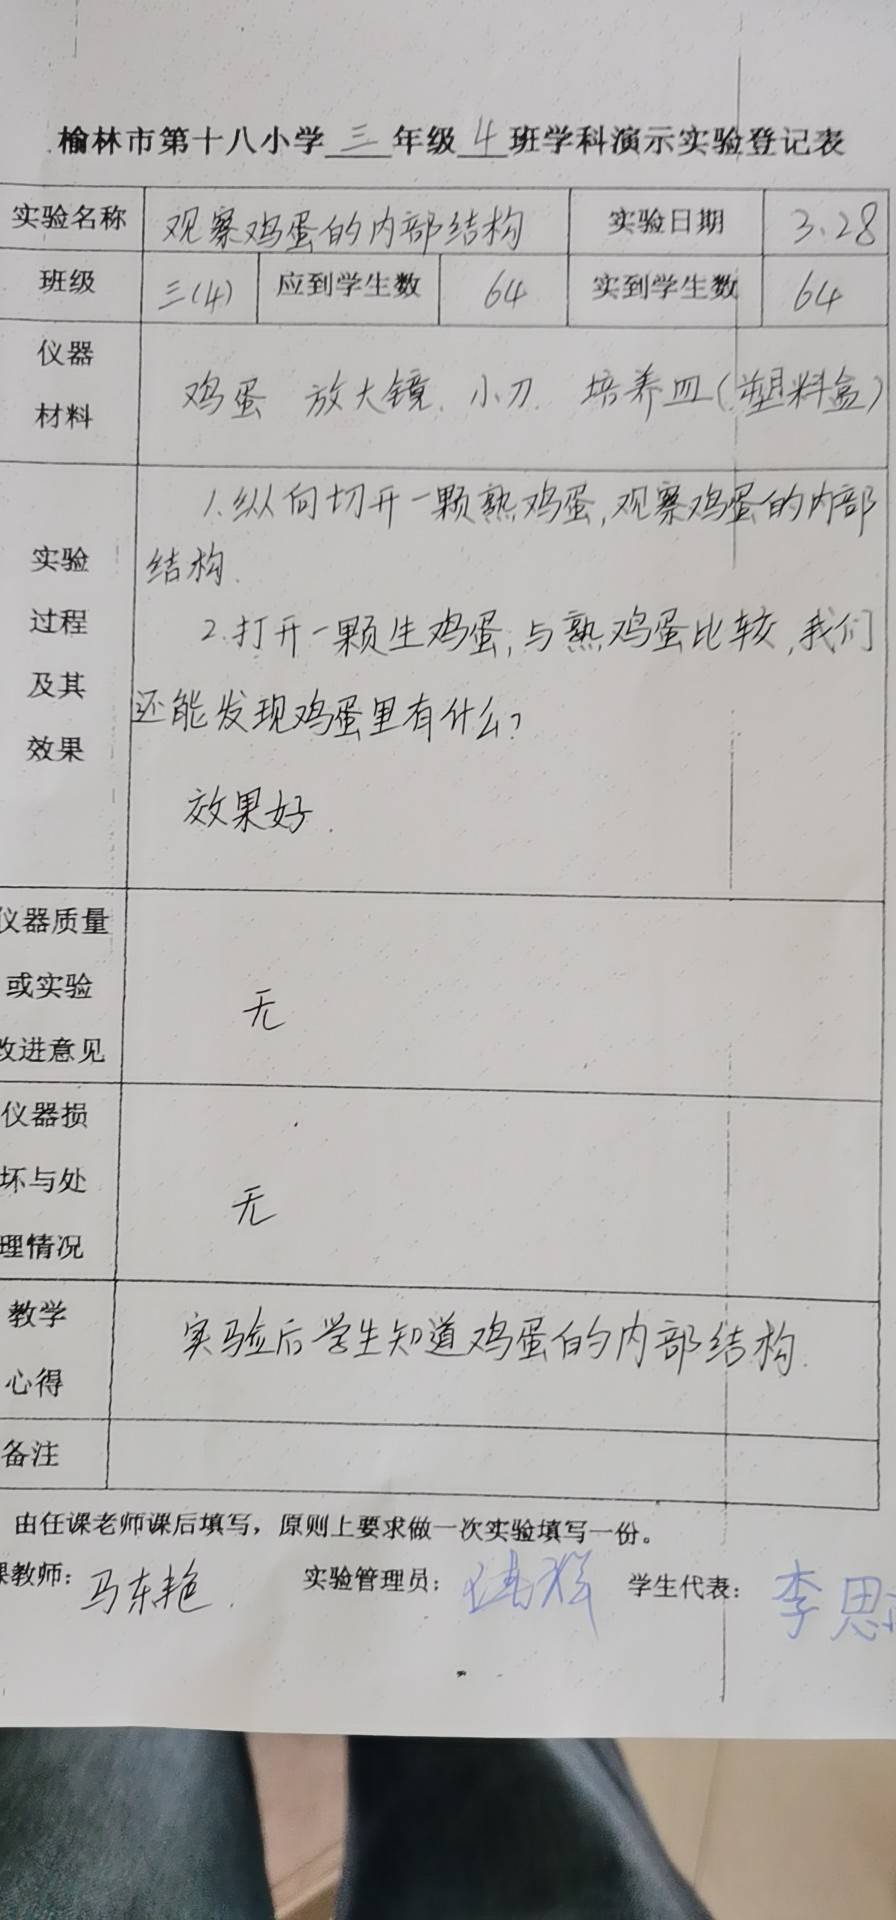 榆林市第十八小学三年级4班学科演示实验登记表
实验名称 观察鸡蛋的内部结构 实验日期 3.28
班级 三(4) 应到学生数 64 实到学生数 64
仪器
材料
鸡蛋 放大镜、小刀、培养皿(塑料盒)
实验
过程
及其
效果
1.纵向切开一颗熟鸡蛋,观察鸡蛋的内部
结构.
2.打开一颗生鸡蛋,与熟鸡蛋比较,我们
还能发现鸡蛋里有什么?
效果好.
仪器质量
或实验
改进意见
无
仪器损
坏与处
理情况
无
教学
心得
实验后学生知道鸡蛋的内部结构.
备注
由任课老师课后填写，原则上要求做一次实验填写一份。
课教师：马东艳. 实验管理员： 学生代表：李思